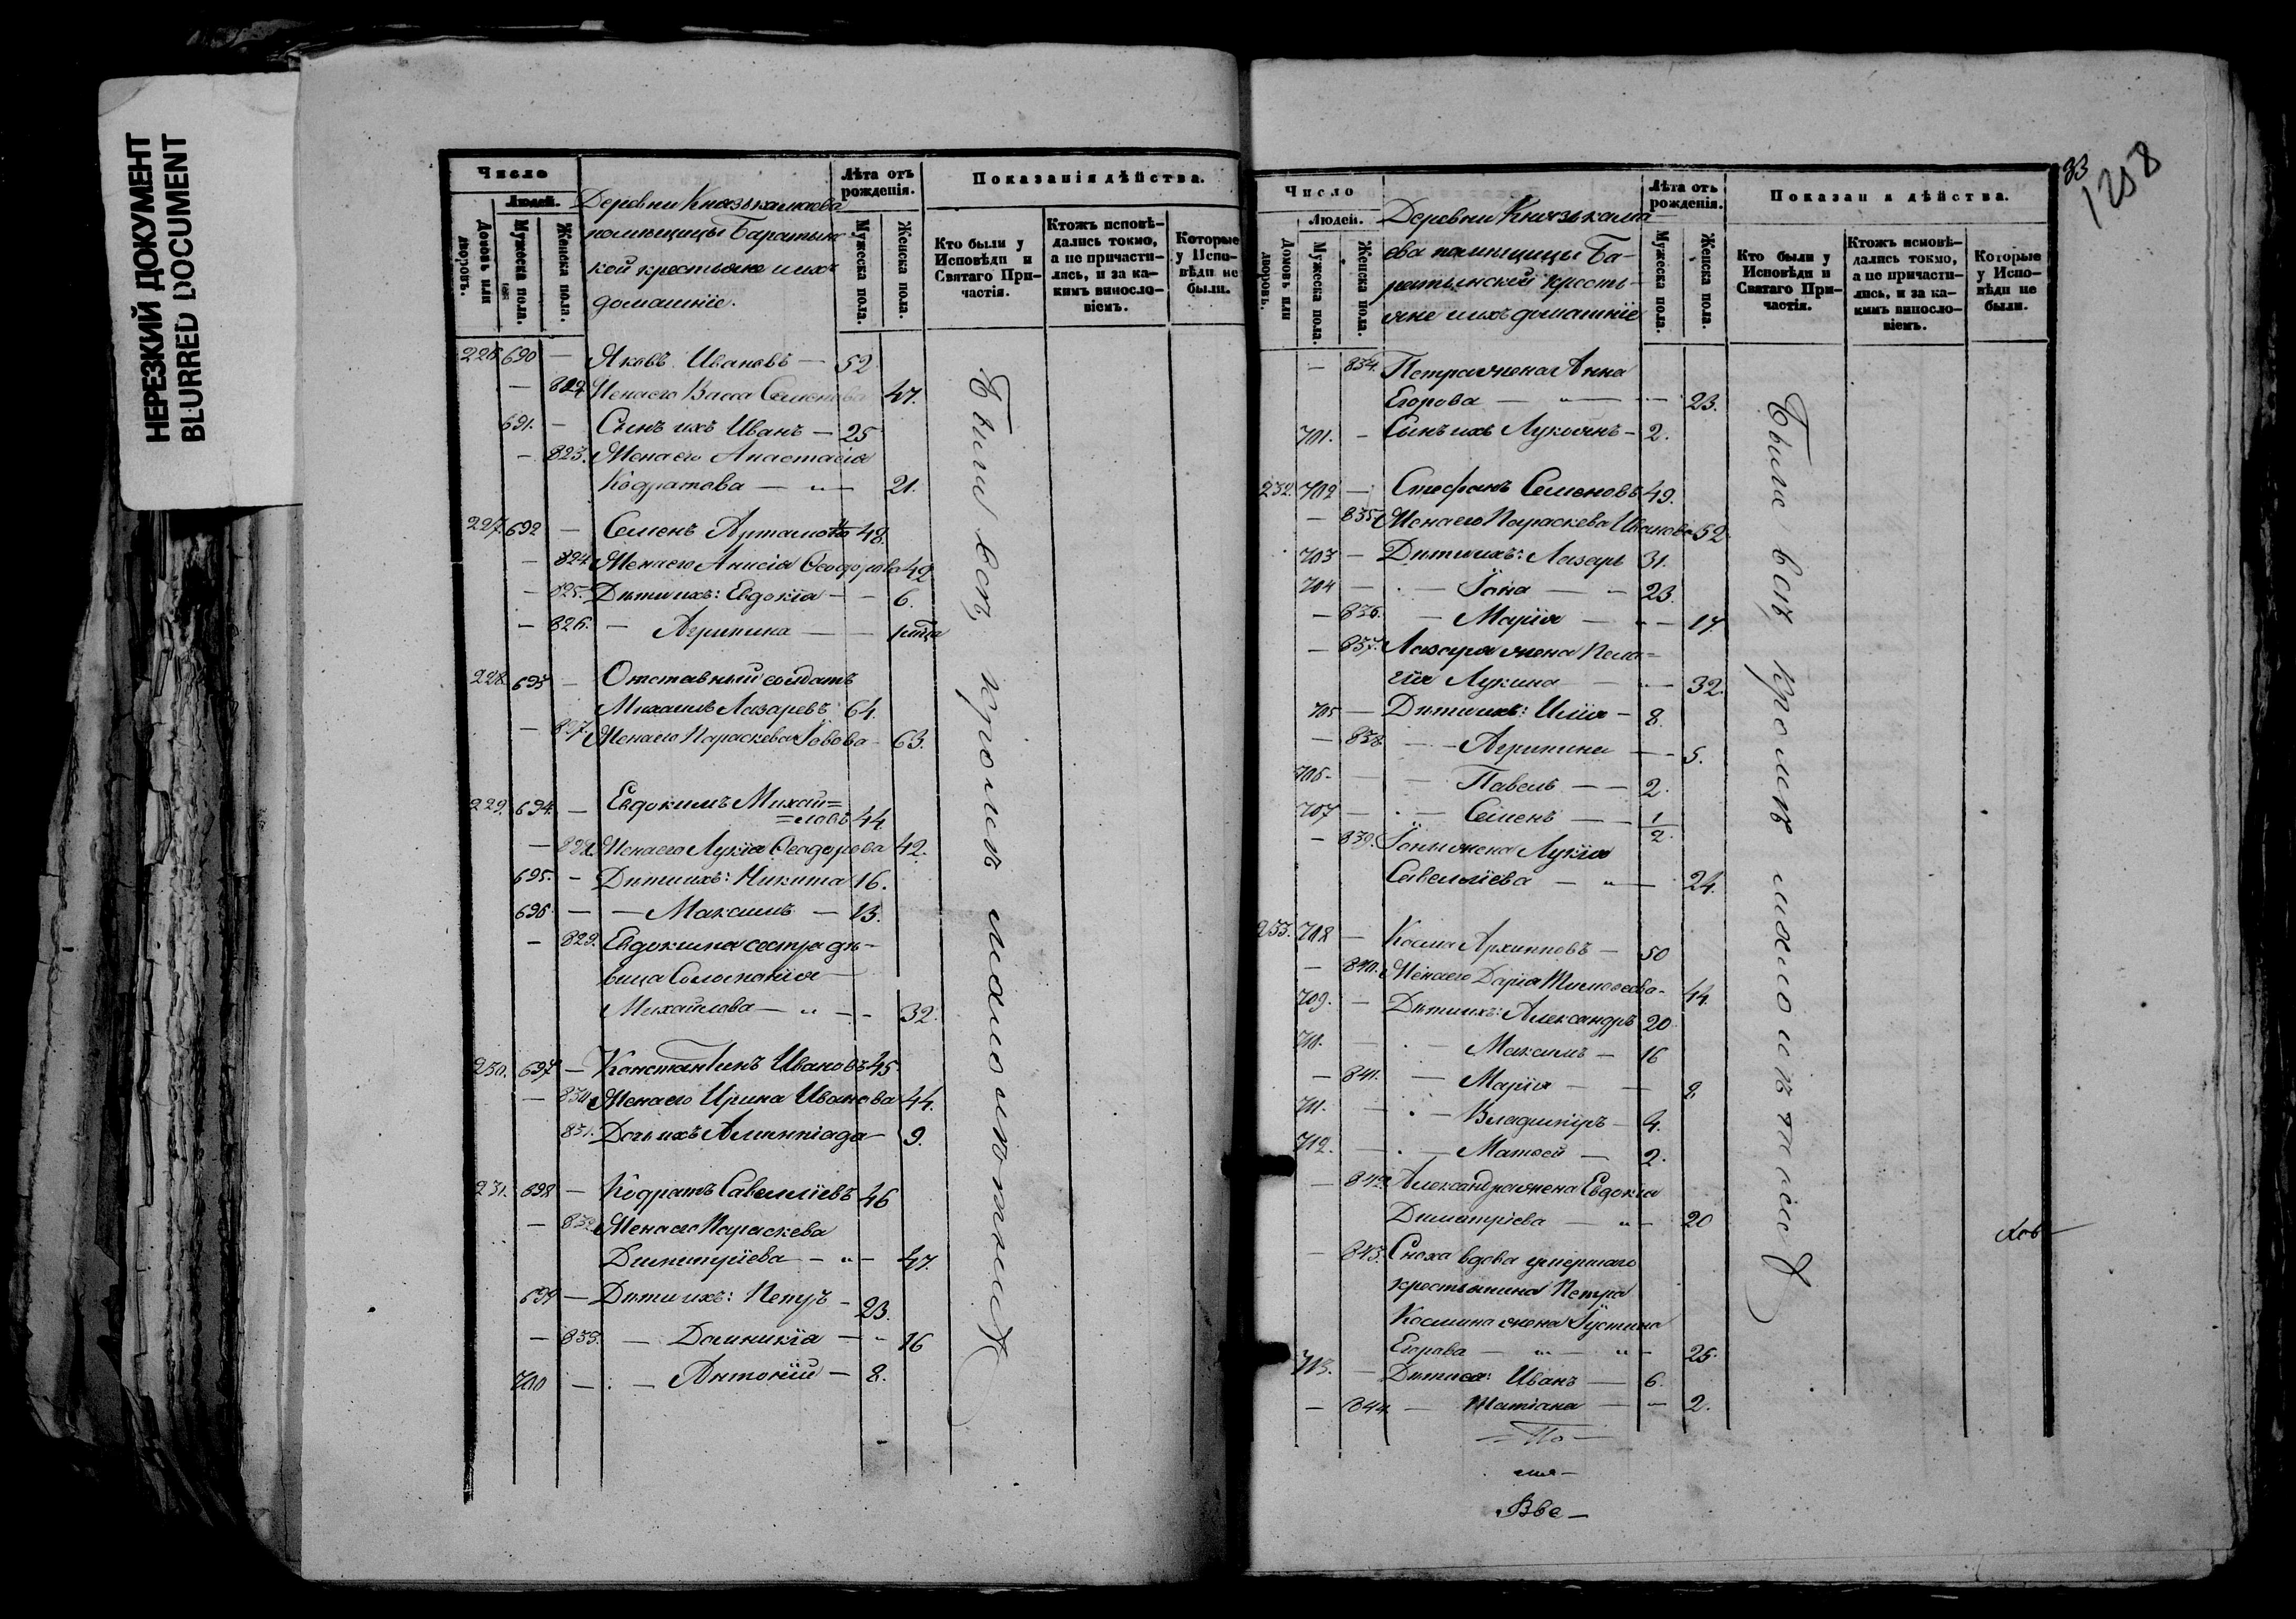 НЕРЕЗКИЙ ДОКУМЕНТ
BLURRED DOCUMENT
Число
Людей.
Домовъ или дворовъ.
Мужеска пола.
Женска пола.
Деревни Князькамаева
помѣщицы Баратынс-
кой крестьяне и ихъ
домашніе.
Лѣта отъ рожденія.
Мужеска пола.
Женска пола.
Показанія дѣйства.
Кто были у Исповѣди и Святаго Причастія.
Ктожъ исповѣдались токмо, а не причастились, и за какимъ винословіемъ.
Которые у Исповѣди не были.
226. 690 — Яковъ Ивановъ — 52
— 822 Жена его Васса Семенова 47.
691. — Сынъ ихъ Иванъ — 25
— 823. Жена его Анастасія
Кодратова — „ — 21.
227. 692 — Семенъ Артамоновъ 48.
— 824 Жена его Анисія Ѳеодорова 49
— 825. Дѣти ихъ: Евдокія — — 6.
— 826. — Агрипина — —
228. 693 — Отставный солдатъ
Михаилъ Лазаревъ 64.
— 827. Жена его Параскева Іовова — 63.
229. 694. — Евдокимъ Михай=
=ловъ 44
— 828. Жена его Лукія Ѳеодорова 42.
695. — Дѣти ихъ: Никита 16.
696 — — Максимъ — 13.
— 829. Евдокима сестра дѣ-
вица Соломонія
Михайлова — „ — — 32.
230. 697 — Константинъ Ивановъ 45
— 830. Жена его Ирина Иванова 44.
831. Дочь ихъ Алимпіада — 9.
231. 698 — Кодратъ Савеліевъ 46
— 832. Жена его Параскева
Димитріева — „ — 47.
699 — Дѣти ихъ: Петръ — 23.
— 833. — Домникія — „ 16
700 — . — Антоній — 8.
Были всѣ, кромѣ малолѣтних
83
1258
Число
Людей.
Домовъ или дворовъ.
Мужеска пола.
Женска пола.
Деревни Князькама
ева помѣщицы Ба-
ратынской кресть-
яне и ихъ домашніе
Лѣта отъ рожденія.
Мужеска пола.
Женска пола.
Показан я дѣйства.
Кто были у Исповѣди и Святаго Причастія.
Ктожъ исповѣдались токмо, а не причастились, и за какимъ винословіемъ.
Которые у Исповѣди не были.
— 834. Петра жена Анна
Егорова — „ — — 23.
701. — Сынъ ихъ Лукіянъ — 2.
232. 702 — Стефанъ Семеновъ 49.
— 835. Жена его Параскева Иванова 52
703 — Дѣти ихъ: Лазарь 31.
704 — . — Іона — — 23.
— 836. — Марія — „ — 17.
— 837. Лазаря жена Пела=
гія Лукина — „ — 32.
705 — Дѣти ихъ: Илія — 8.
— 838. — — Агрипина — — 5.
706 — — Павелъ — — 2.
707 — . — Семенъ — — 1/2
— 839. Іоны жена Лукія
Савеліева — „ — 24.
233. 708 — Косма Архиповъ — 50
— 840. Жена его Дарія Тимоѳеева — 44.
709. — Дѣти ихъ: Александръ 20
710. — . — Максимъ — 16
— 841. — Марія — — 8
711. — . — Владиміръ — 4.
712. — . — Матѳей — 2.
— 842. Александра жена Евдокія
Димитріева — „ — 20
— 843. Сноха вдова умершаго
крестьянина Петра
Космина жена Іустина
Егорова — „ — „ — 25.
713. — Дѣти ея: Иванъ — 6.
— 844. — Татіана — — 2.
Были всѣ, кромѣ малолѣтних
= По —